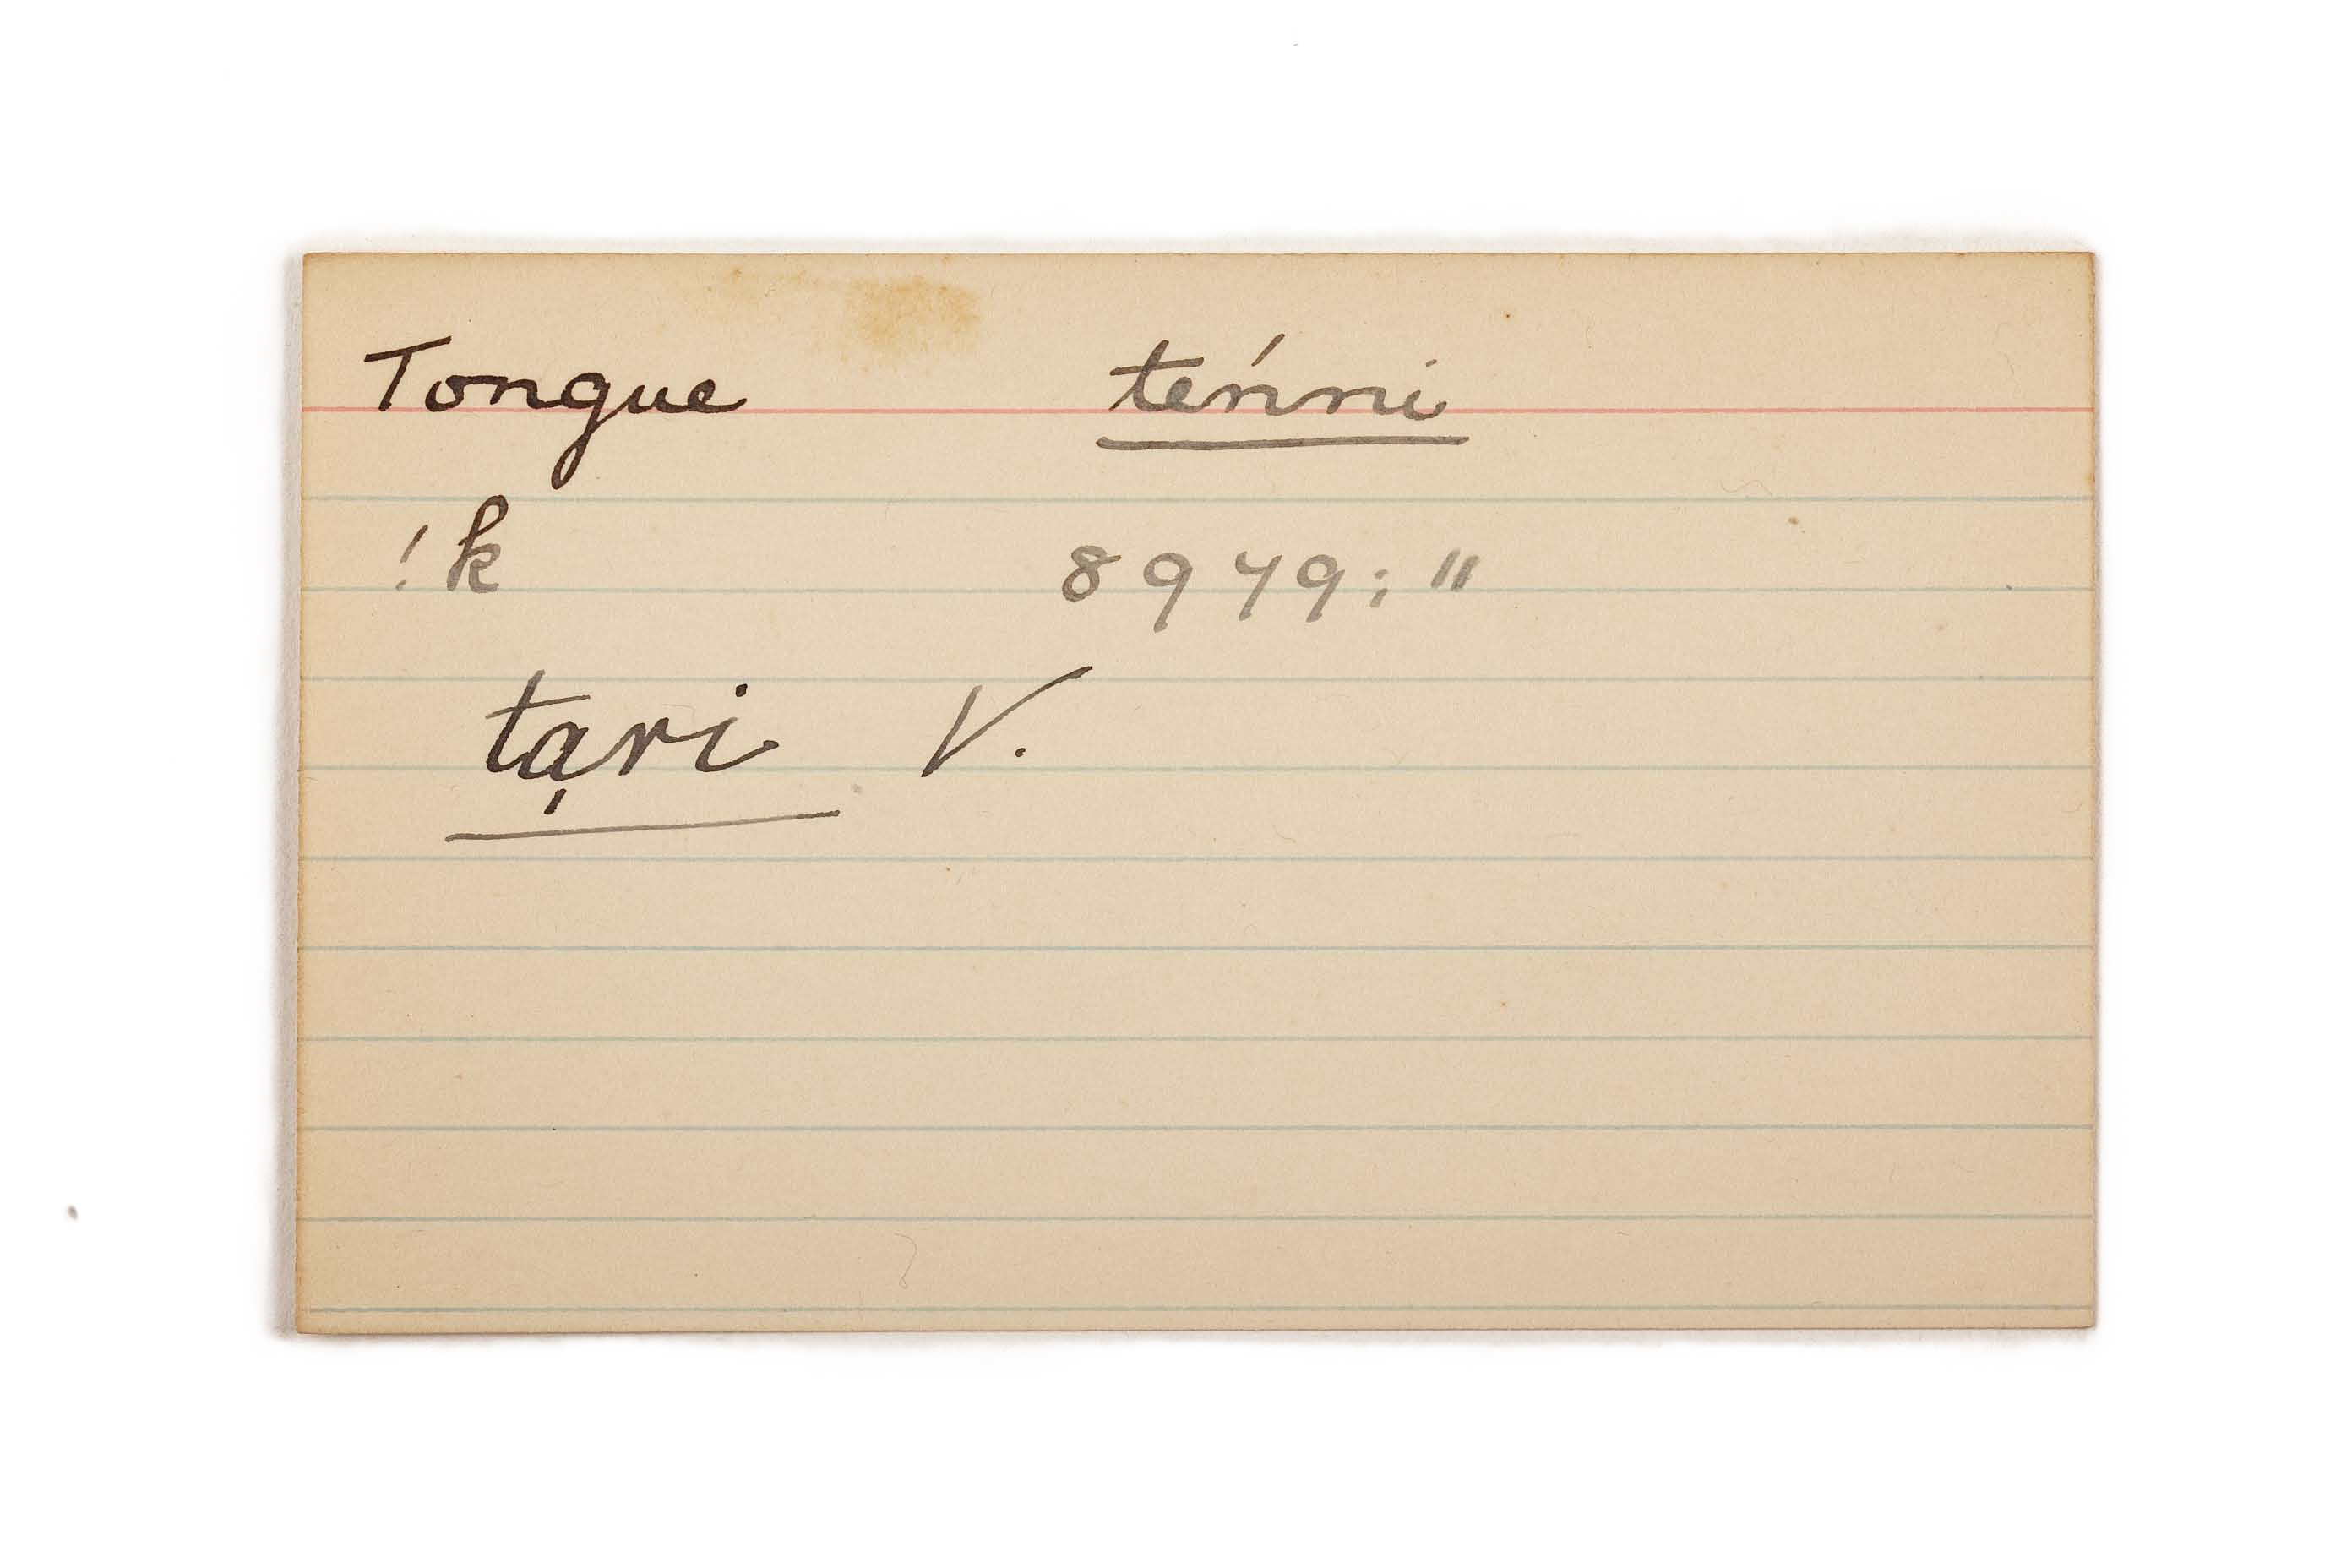 Tongue teńni
!k 8979; "
ta̦ri V.